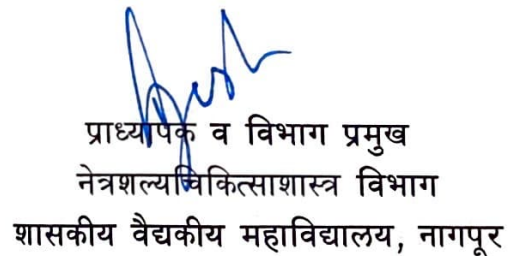 प्राध्यापक व विभाग प्रमुख
नेत्रशल्यचिकित्साशास्त्र विभाग
शासकीय वैद्यकीय महाविद्यालय, नागपूर